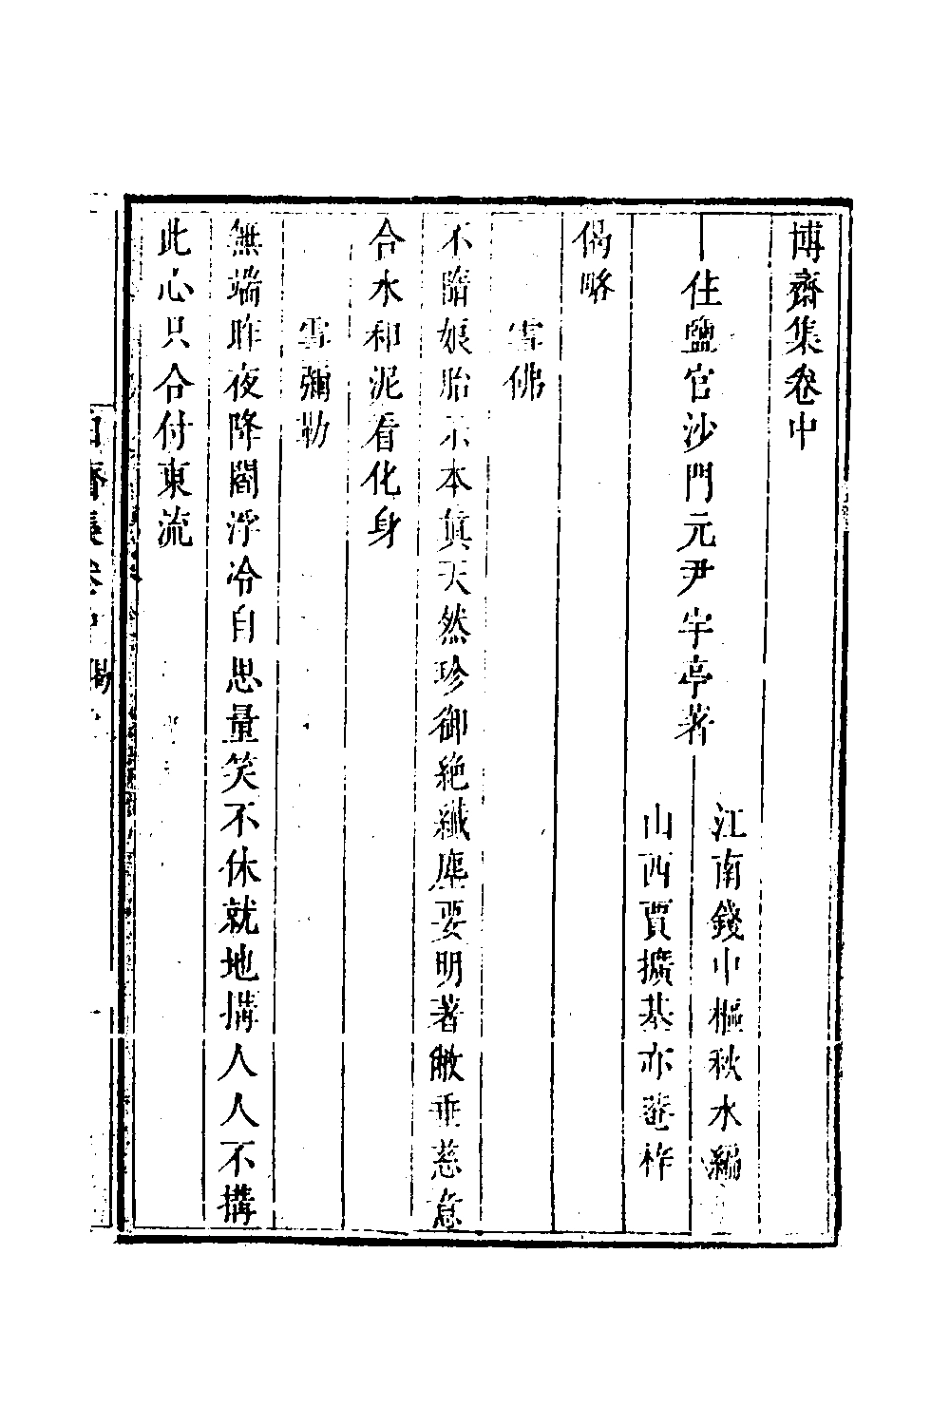 博齋集卷中
住鹽官沙門元尹宇亭著
江南錢中樞秋水編
山西賈擴基亦菴柞
偈略
雪佛
不隨娘胎示本真天然珍御絶纖塵要明著敝垂慈意
合水和泥看化身
雪彌勒
無端昨夜降閻浮冷自思量笑不休就地搆人人不搆
此心只合付東流
齋集卷中偈